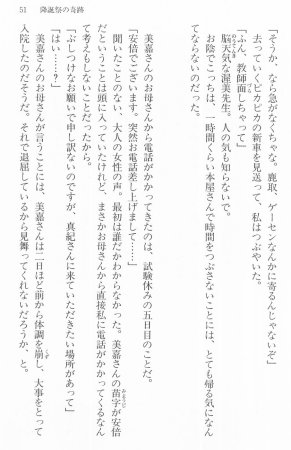 51　降誕祭の奇跡
「そうか、なら急がなくちゃな。鹿取、ゲーセンなんかに寄るんじゃないぞ」
去っていくピカピカの新車を見送って、私はつぶやいた。
「ふん、教師面しちゃって」
脳天気な渥美先生。人の気も知らないで。
お陰でこっちは、一時間くらい本屋さんで時間をつぶさないことには、とても帰る気になん
てならないのだった。
美嘉さんのお母さんから電話がかかってきたのは、試験休みの五日目のことだ。
「安倍でございます。突然お電話差し上げまして……」
聞いたことのない、大人の女性の声。最初は誰だかわからなかった。美嘉さんの苗字が安倍
だということは頭に入っていたけれど、まさかお母さんから直接私に電話がかかってくるなん
て考えもしないことだったから。
「ぶしつけなお願いで申し訳ないのですが、真紀さんに来ていただきたい場所があって」
「はい……？」
美嘉さんのお母さんが言うことには、美嘉さんは二日ほど前から体調を崩し、大事をとって
入院したのだそうだ。それで退屈しているから見舞ってくれないだろうか、と。